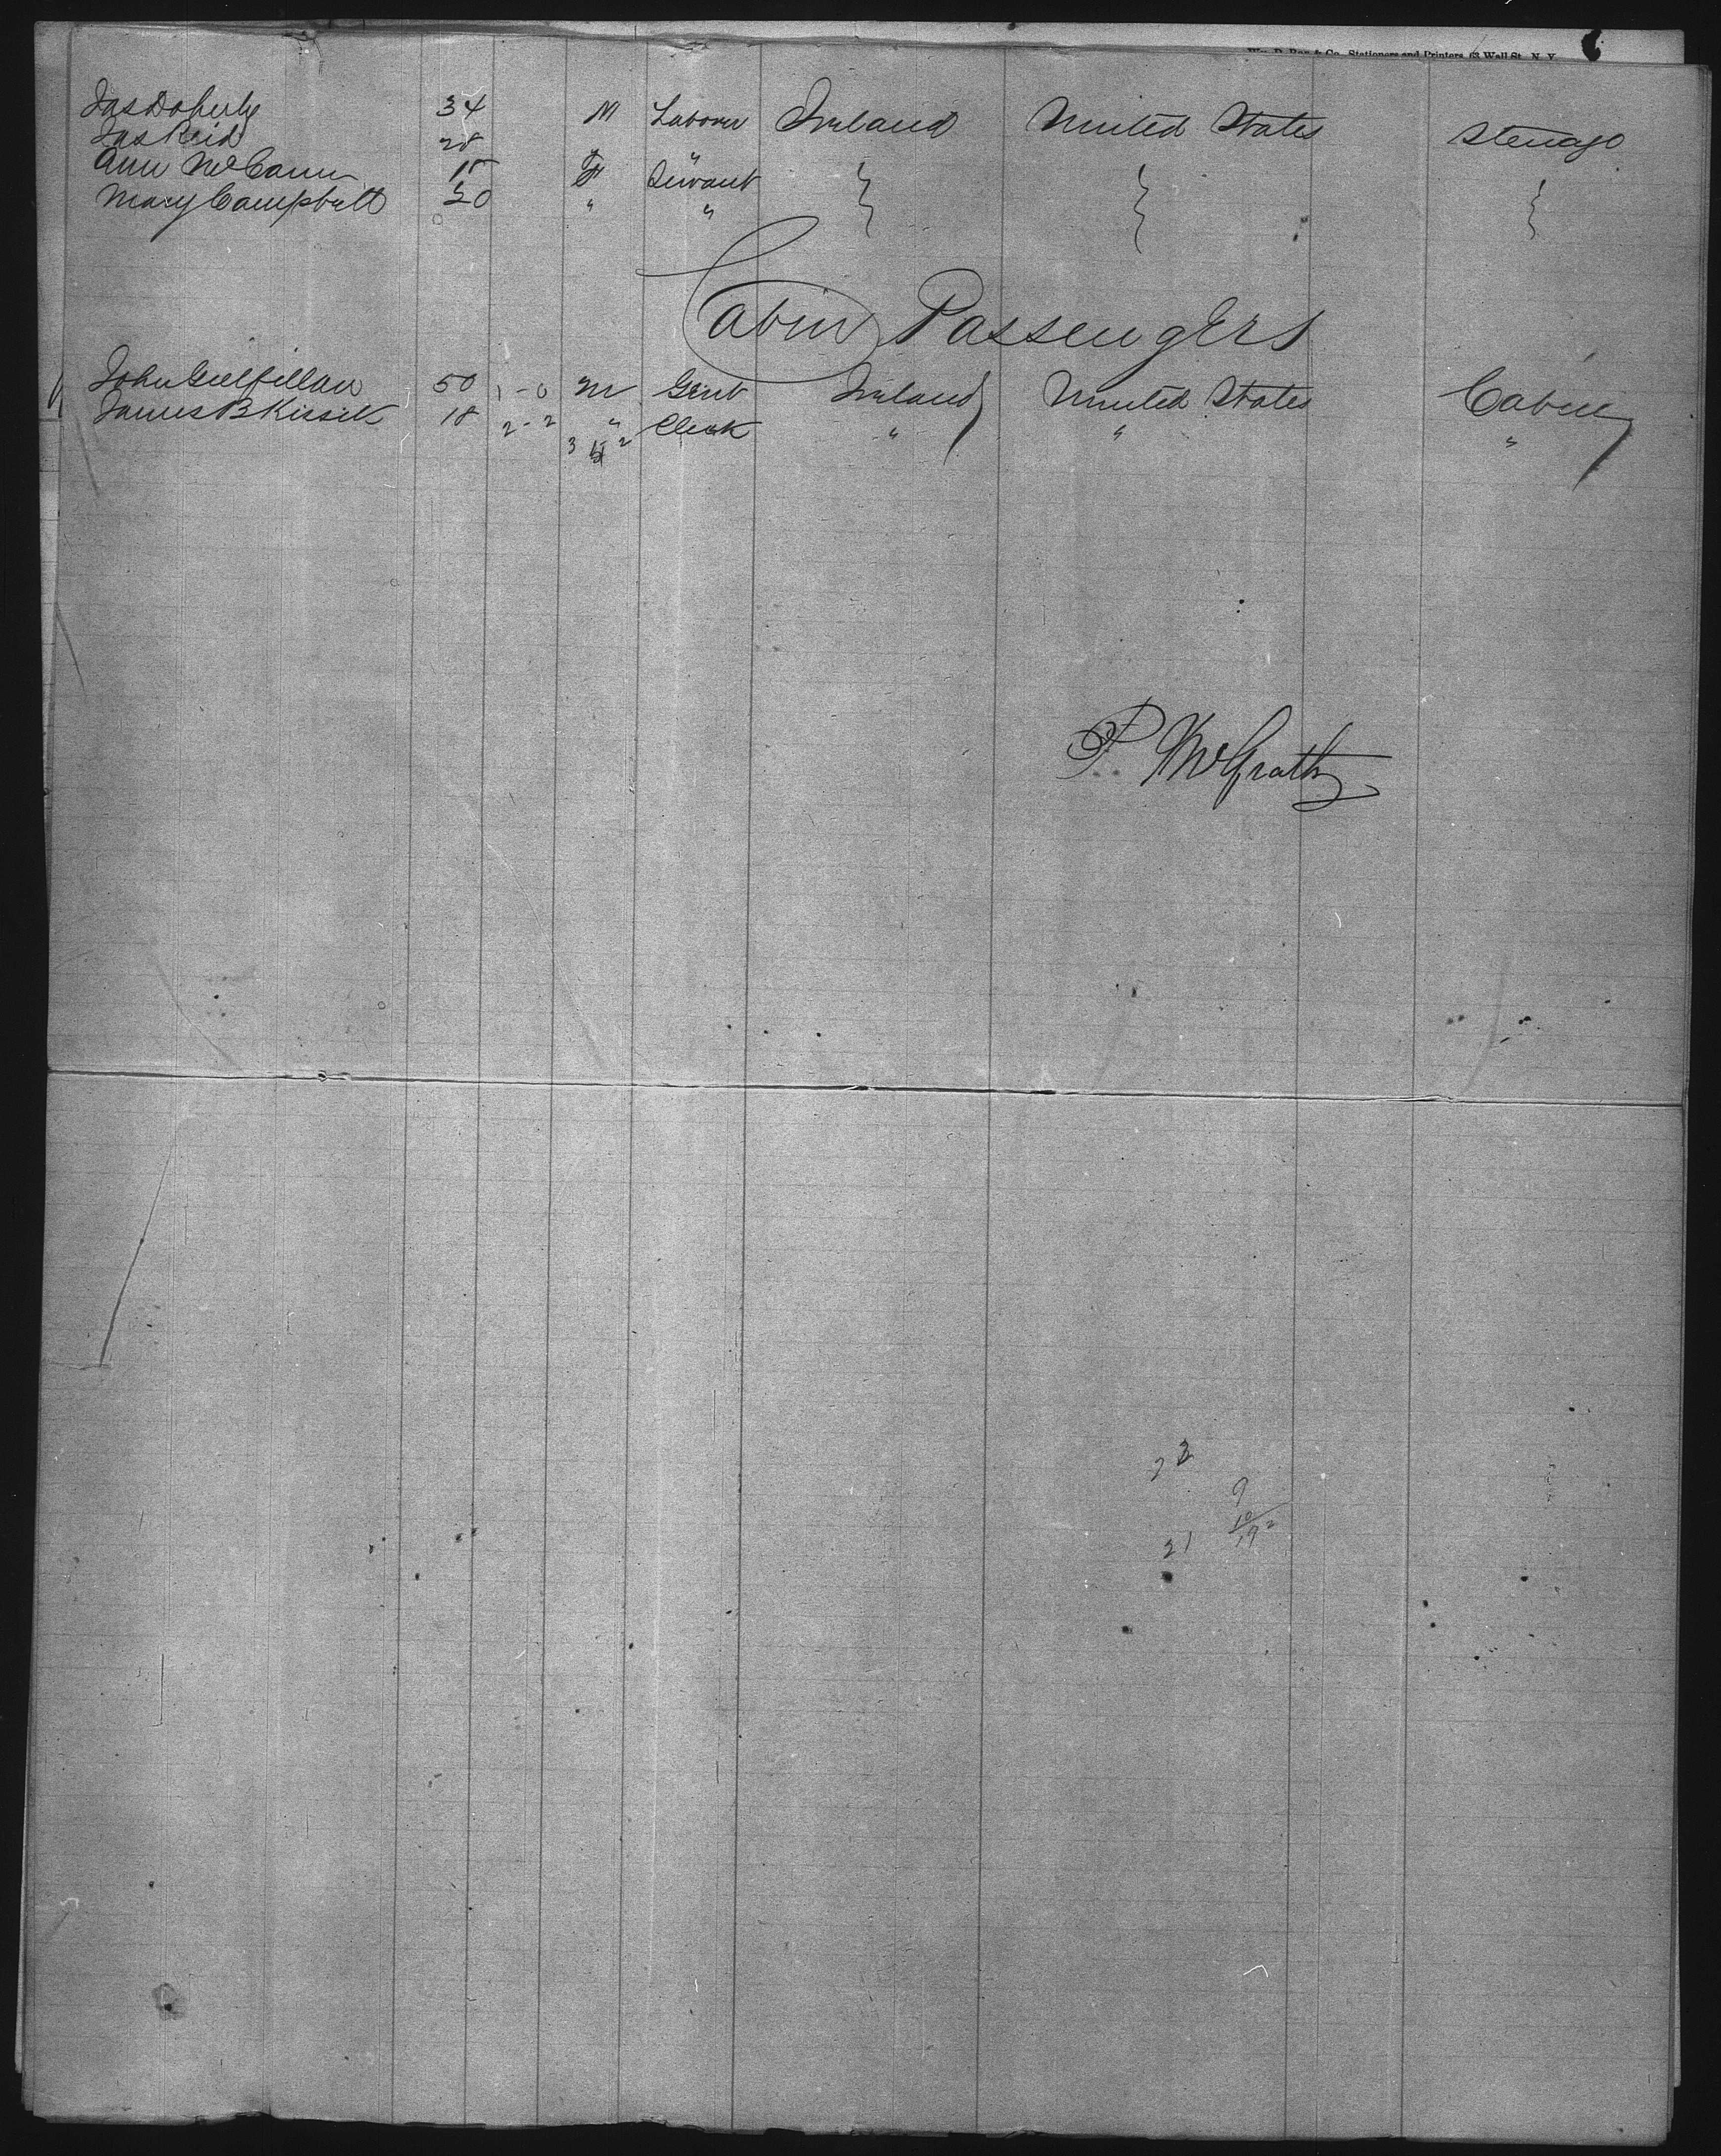 Stationers and Printers, 63 Wall St., N. Y.
Jas Doherty 34 M Laborer Ireland United States Steerage
Jas Reid 28 " "
Ann McCann 18 F Servant
Mary Campbell 20 " "
Cabin Passengers
John Guilfillan 50 1-0 M Gent Ireland United States Cabin
James B Kissick 18 2-2 " Clerk " " "
3 2
P. McGrath
22
9
10
21 19 2